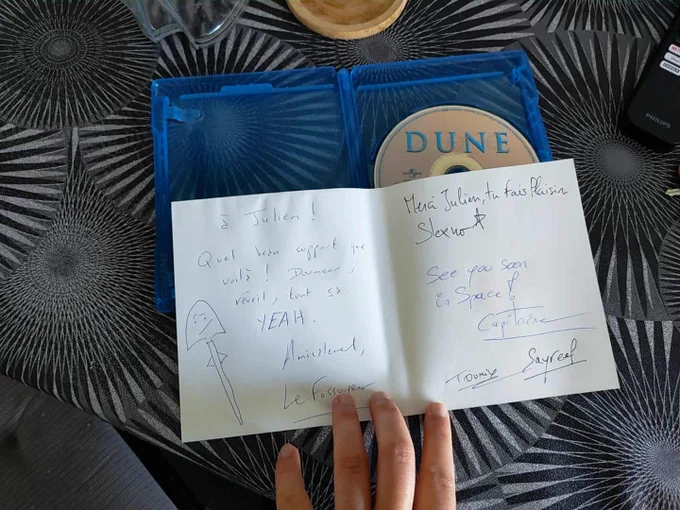 DUNE
à Julien !
Quel beau support que
voilà ! Dormeur,
réveil, tout ça.
YEAH.
Amicalement,
Le Fossoyeur
Merci Julien, tu fais plaisir
See you soon
in Space !
Capitaine
PHILIPS